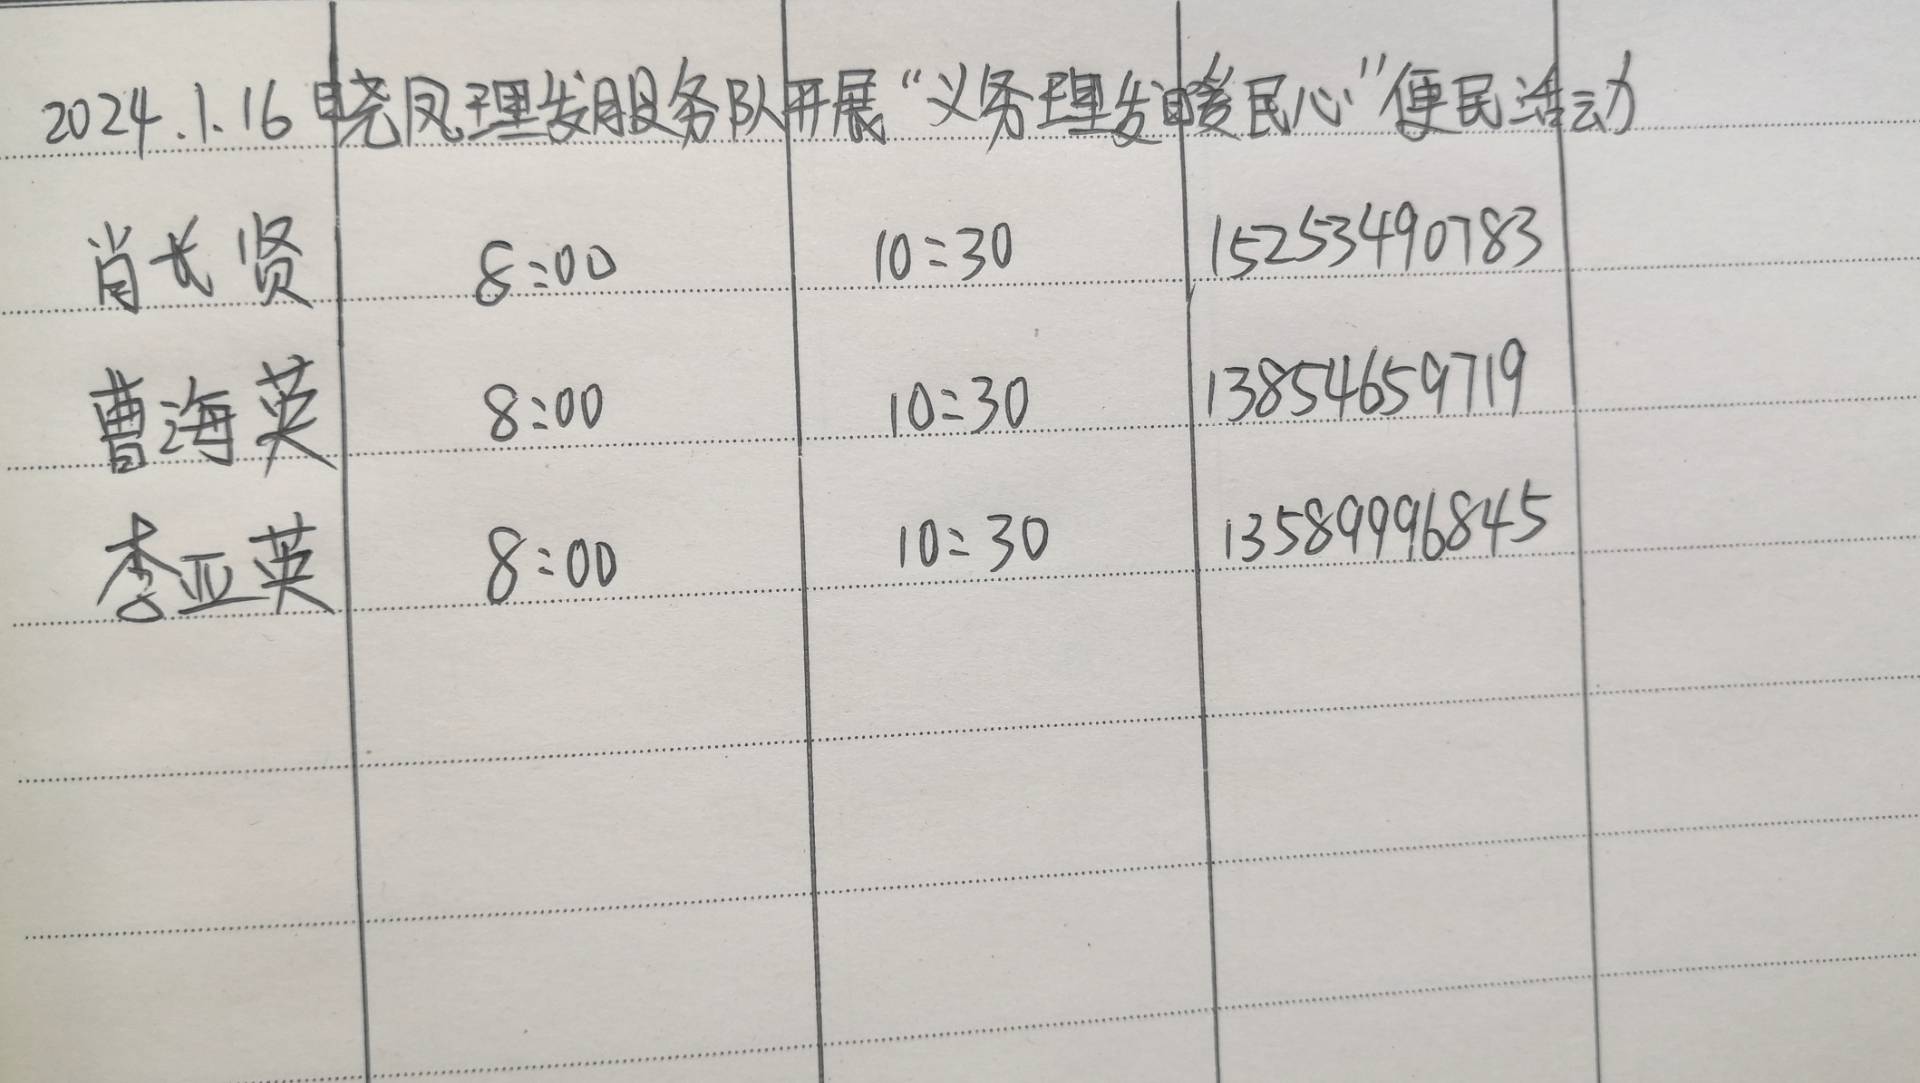 2024.1.16晓凤理发服务队开展“义务理发暖民心”便民活动
肖长贤 8:00 10:30 15253490783
曹海英 8:00 10:30 13854659719
李亚英 8:00 10:30 13589996845